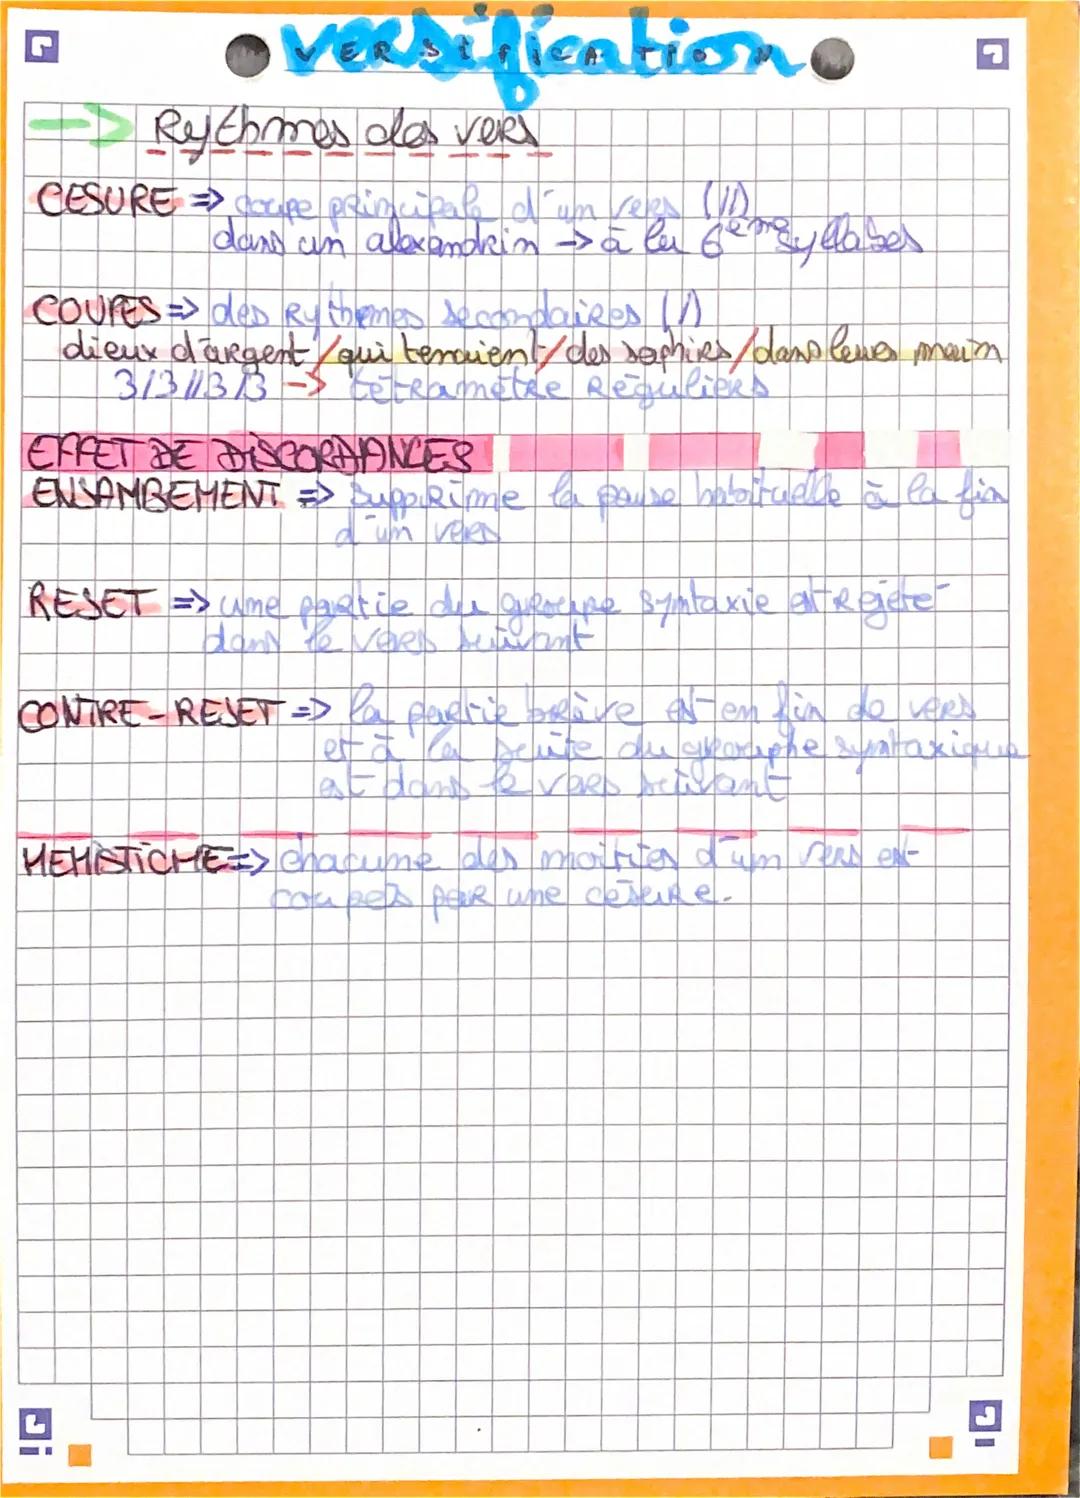 versification
VERSIFICATION
Rythmes des vers
CESURE => coupe principale d'un vers (//)
dans un alexandrin -> à la 6ème syllabes
COUPES => des Rythmes secondaires (/)
dieux d'argent / qui tenaient / des saphirs / dans leurs main
3/3//3/3 -> tétramètre Réguliers
EFFET DE DISCORDANCES
ENJAMBEMENT => supprime la pause habituelle à la fin
d'un vers
REJET => une partie du groupe syntaxie est Rejeté
dans le vers suivant
CONTRE-REJET => la partie brève est en fin de vers
et à la suite du grouphe syntaxique
est dans le vers suivant
HEMISTICHE => chacune des moitiés d'un vers est
coupés par une césure.